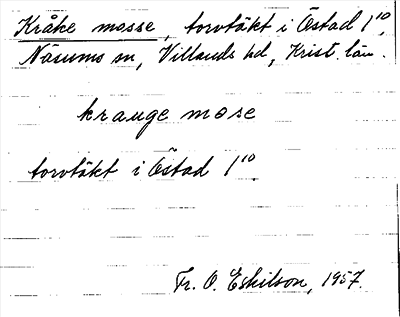 Kråke mosse, torvtäkt i Östad 1¹⁰,
Näsums sn, Villands hd, Krist. län.
krauge mose
torvtäkt i Östad 1¹⁰.
Fr. O. Eskilson, 1957.